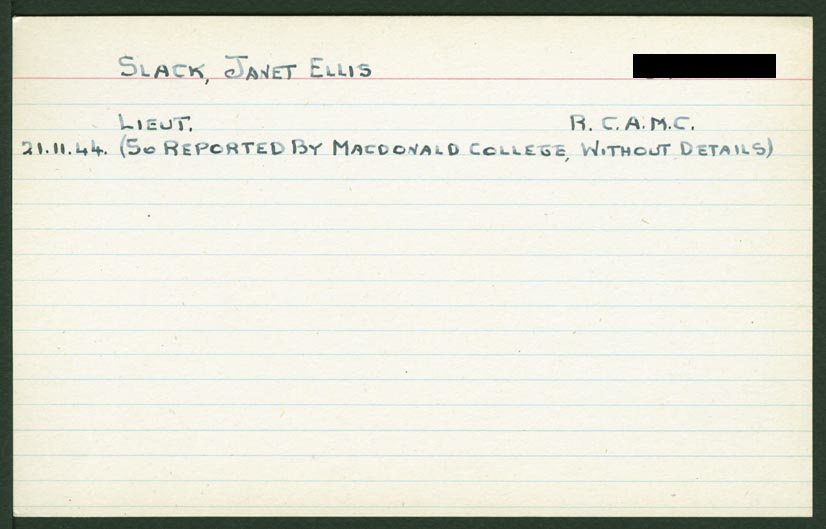 SLACK, JANET ELLIS
LIEUT. R. C. A. M. C.
21.11.44. (SO REPORTED BY MACDONALD COLLEGE, WITHOUT DETAILS)